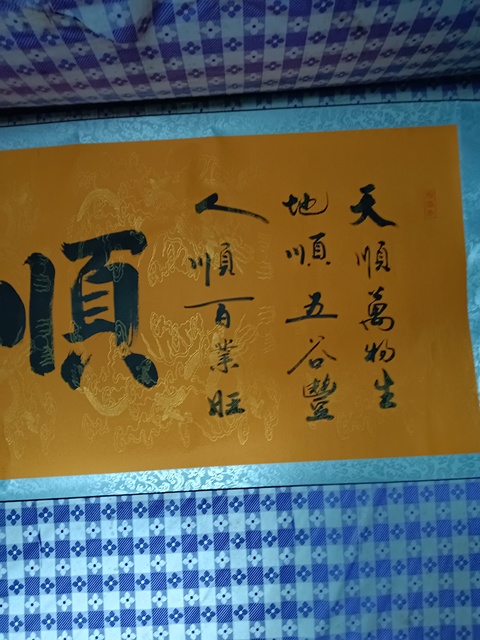 天順萬物生
地順五谷豐
人順百業旺
順